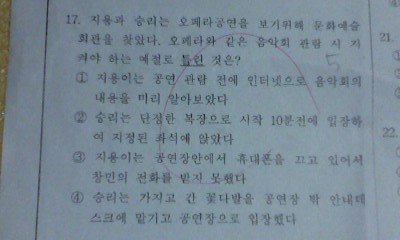 17. 지용과 승리는 오페라공연을 보기위해 문화예술
회관을 찾았다. 오페라와 같은 음악회 관람 시 지
켜야 하는 예절로 틀린 것은?
① 지용이는 공연 관람 전에 인터넷으로 음악회의
내용을 미리 알아보았다
② 승리는 단정한 복장으로 시작 10분전에 입장하
여 지정된 좌석에 앉았다
③ 지용이는 공연장안에서 휴대폰을 끄고 있어서
창민의 전화를 받지 못했다
④ 승리는 가지고 간 꽃다발을 공연장 밖 안내데
스크에 맡기고 공연장으로 입장했다
5
21.
22.